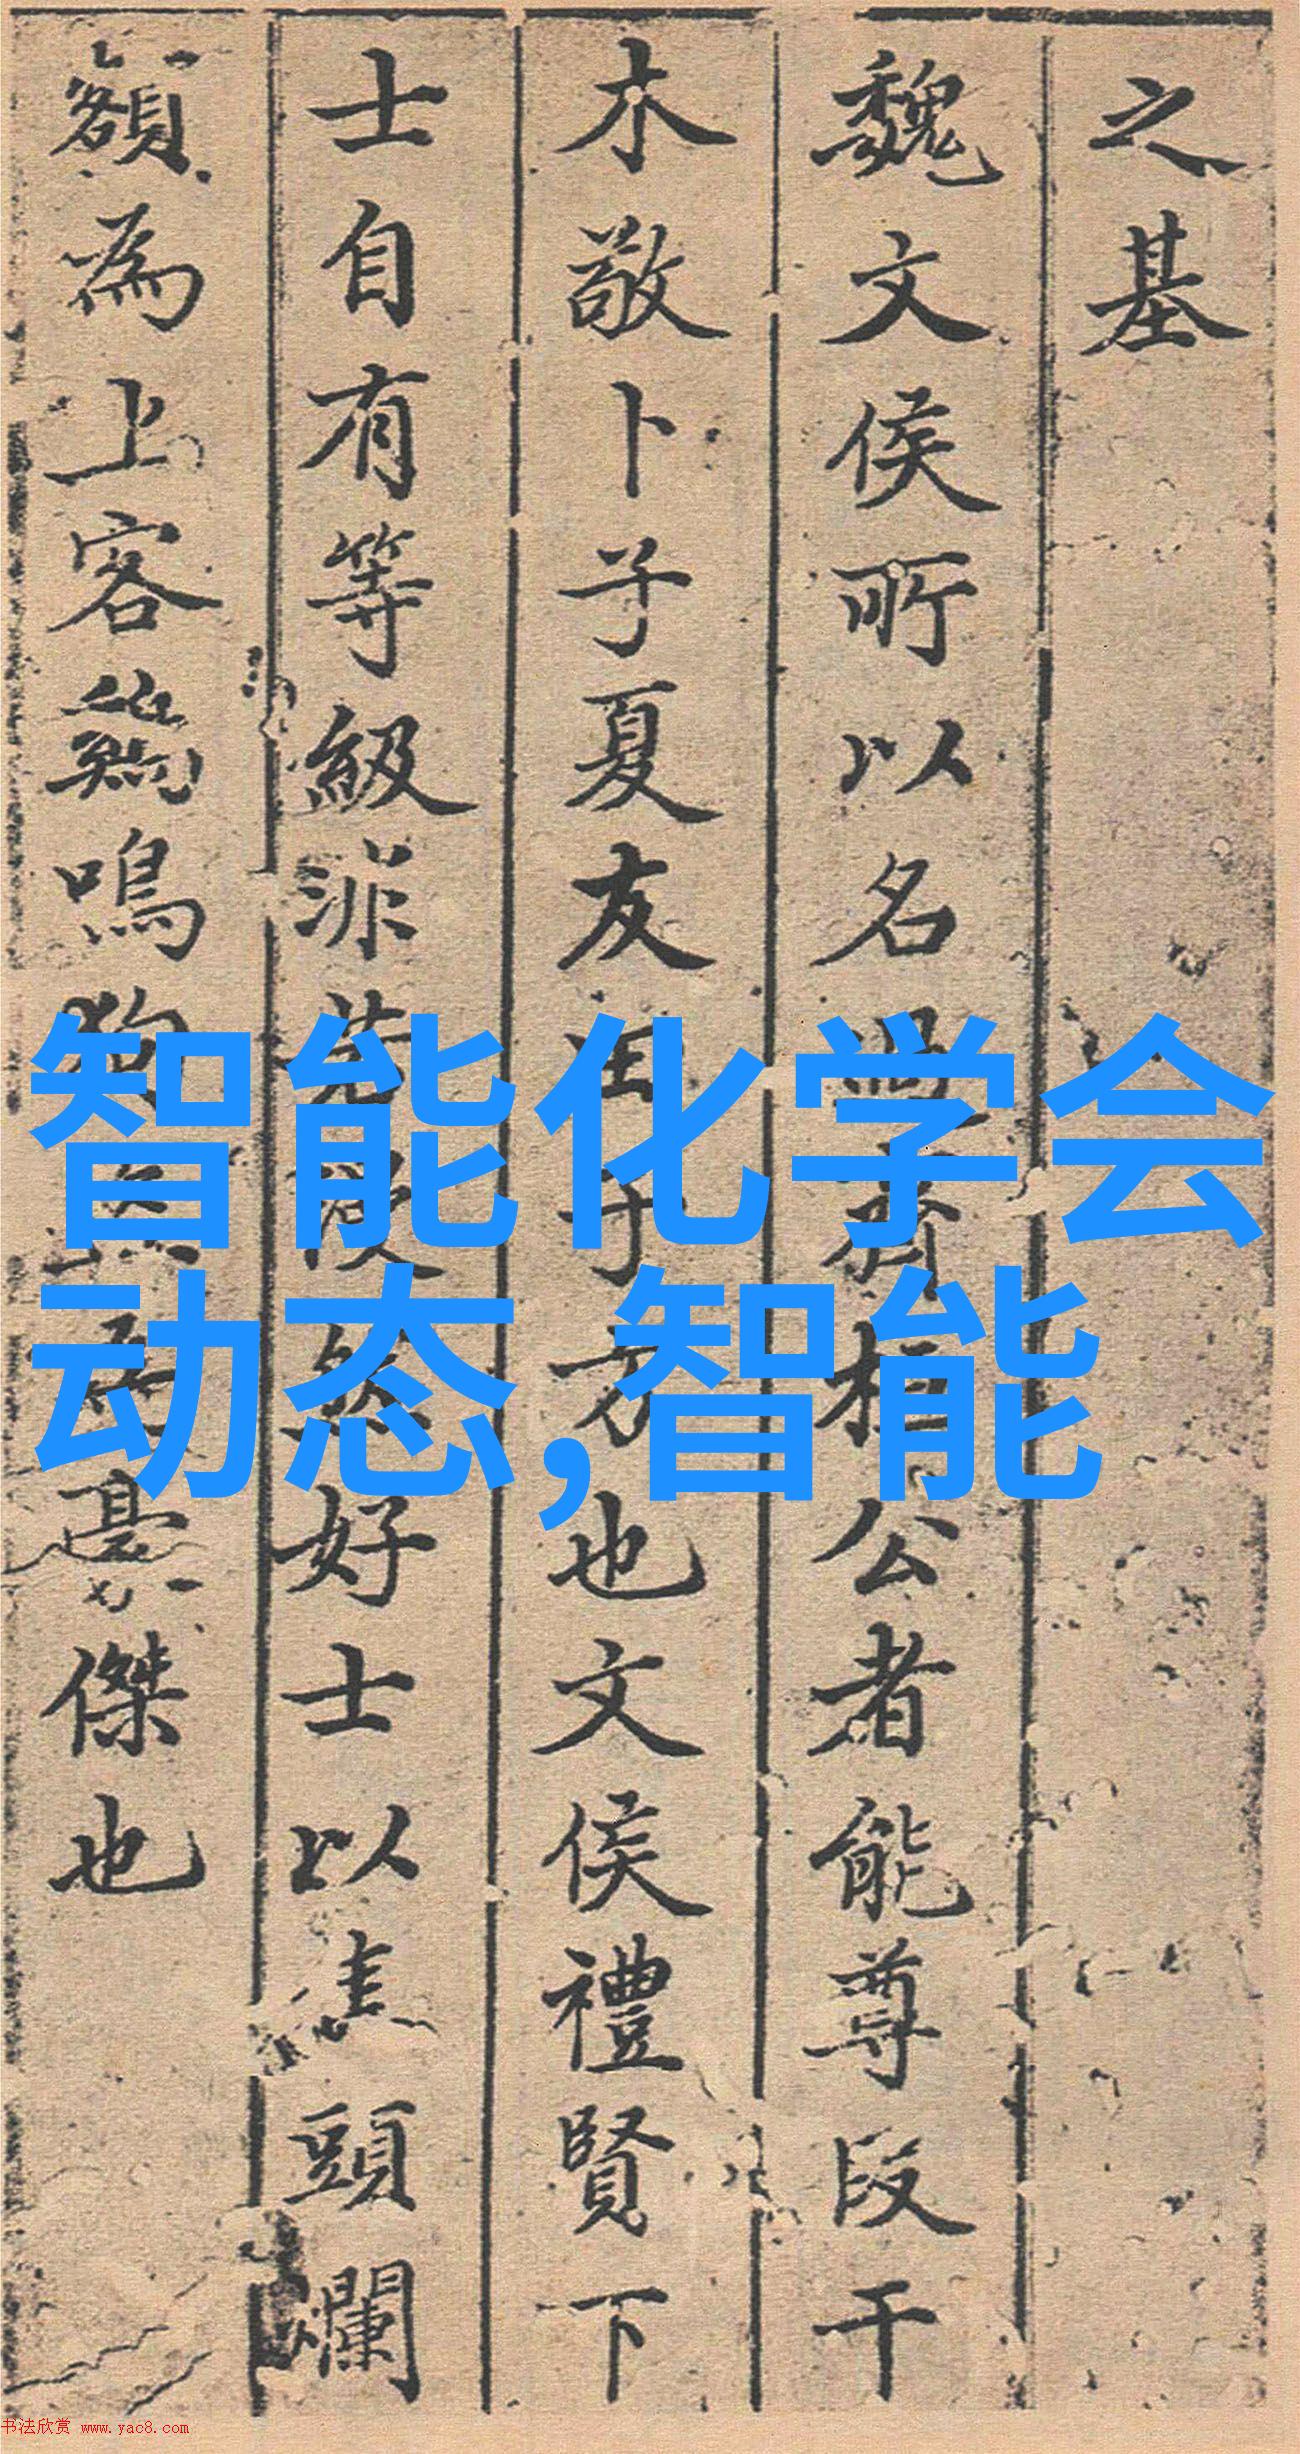 之基
魏文侯所以名過齊桓公者能尊段干
木敬卜子夏友田子方也文侯禮賢下
士自有等級非若好士以焦頭爛
額為上客鷄鳴狗豪傑也
智能化学会
动态,智能
书法欣赏 www.yac8.com